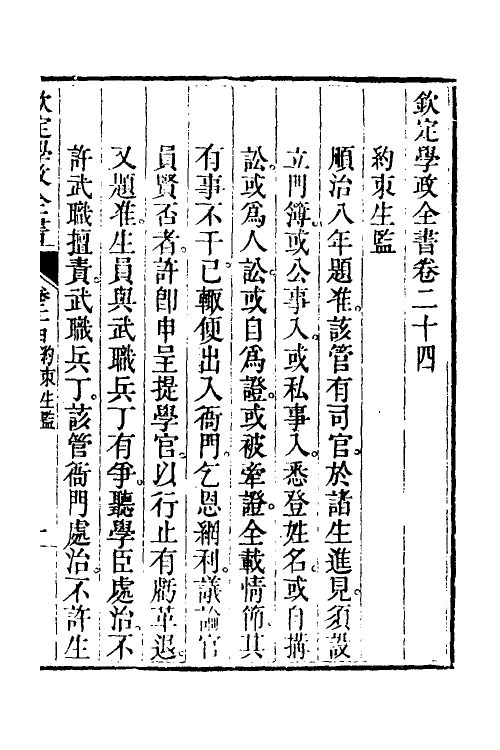 欽定學政全書卷二十四
約束生監
順治八年題准。該管有司官。於諸生進見。須設
立門簿。或公事入。或私事入。悉登姓名。或自搆
訟。或爲人訟。或自爲證。或被牽證。全載情節。其
有事不干己。輒便出入衙門。乞恩網利。議論官
員賢否者。許卽申呈提學官。以行止有虧革退。
又題准。生員與武職兵丁有爭。聽學臣處治。不
許武職擅責。武職兵丁。該管衙門處治。不許生
欽定學政全書
卷二十四約束生監
一